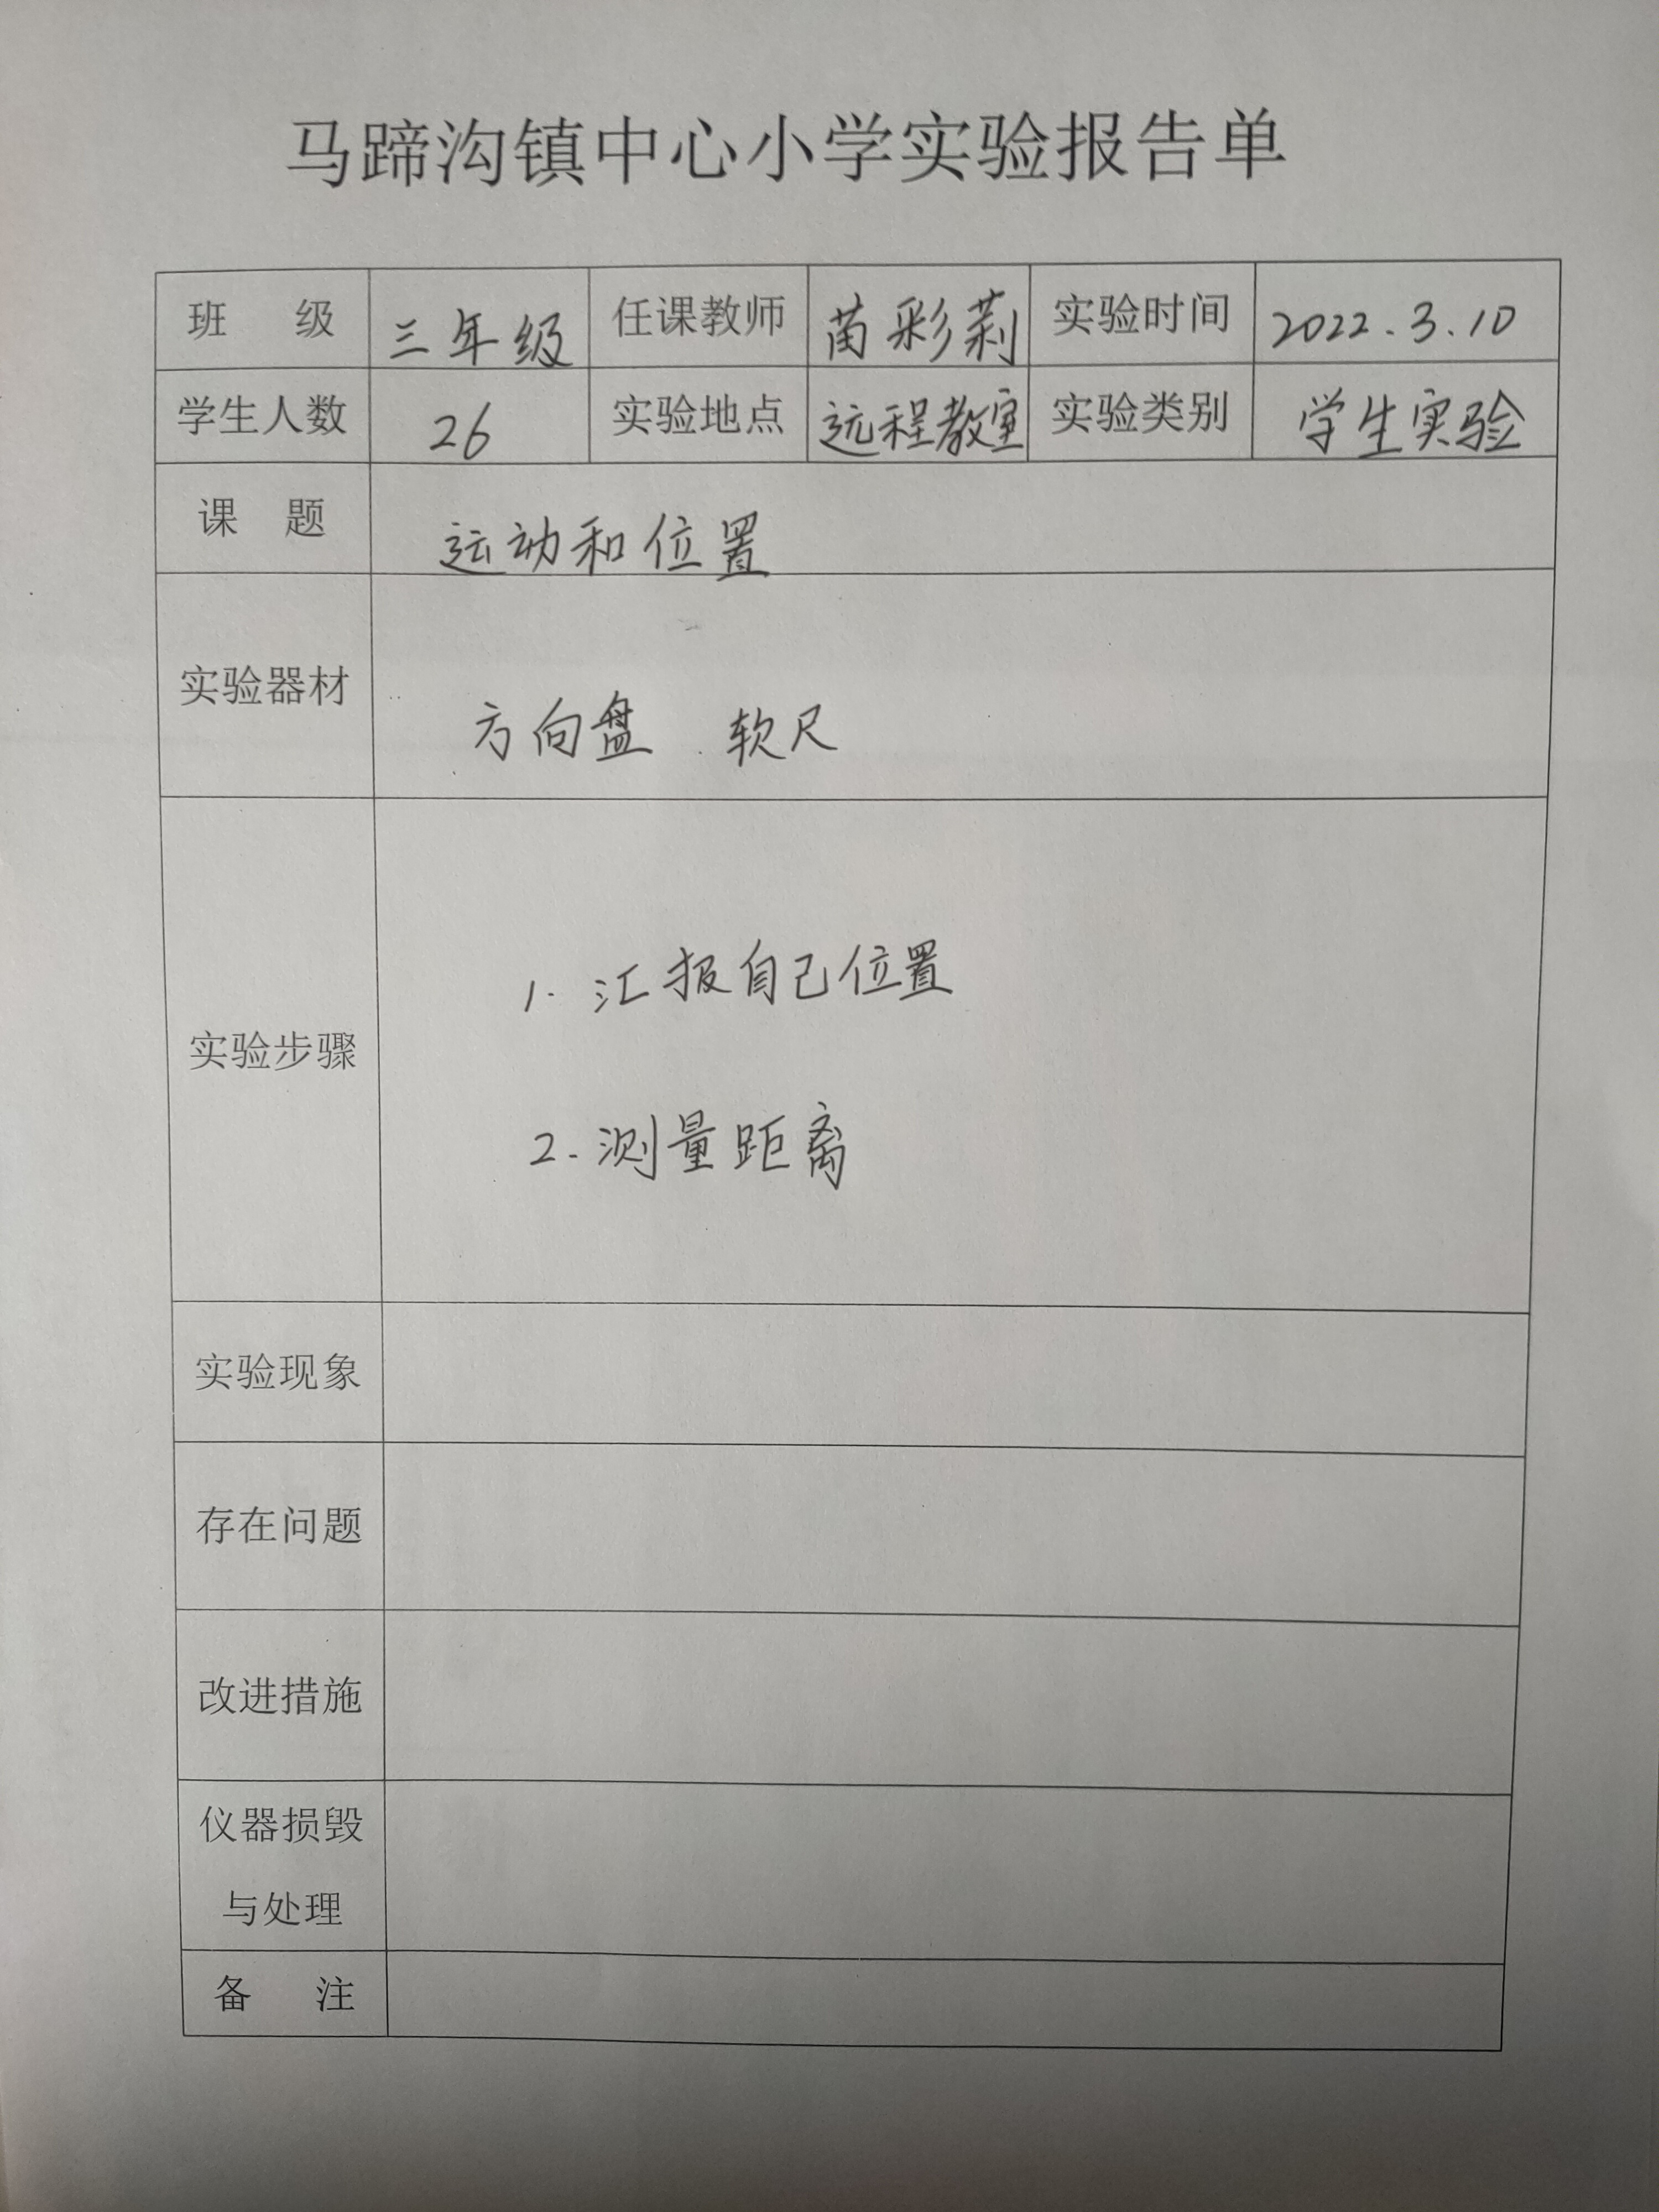 马蹄沟镇中心小学实验报告单
班 级 三年级 任课教师 苗彩莉 实验时间 2022.3.10
学生人数 26 实验地点 远程教室 实验类别 学生实验
课 题 运动和位置
实验器材 方向盘 软尺
实验步骤
1. 汇报自己位置
2. 测量距离
实验现象
存在问题
改进措施
仪器损毁
与处理
备 注